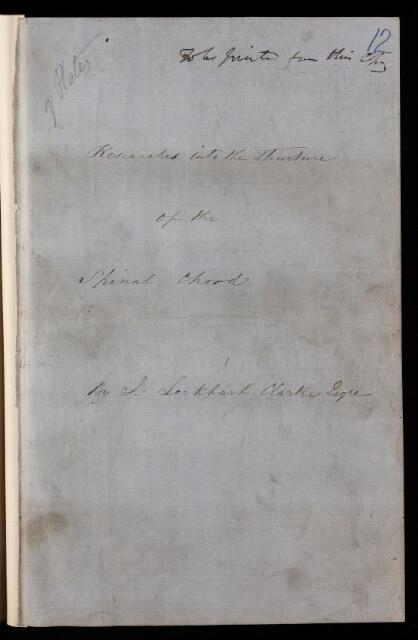 12
To be printed from this Copy
7 Plates
Researches into the structure
of the
Spinal Chord
By J. Lockhart Clarke Esqre